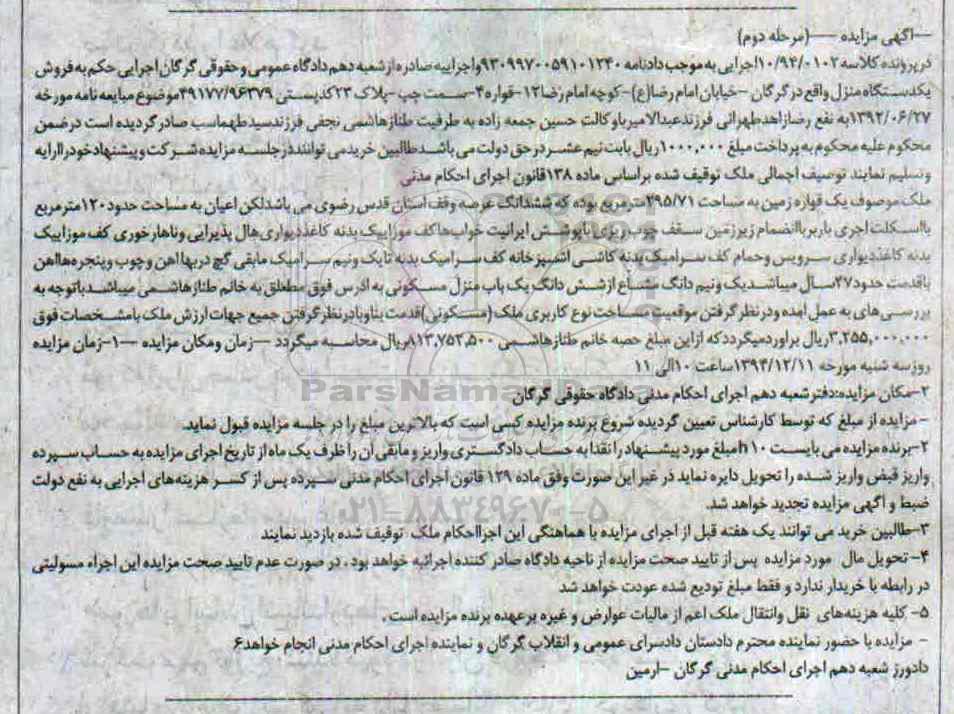 —آگهی مزایده —(مرحله دوم)
در پرونده کلاسه ۱۰/۹۴/۰۱۰۲اجرایی به موجب دادنامه ۹۳۰۹۹۷۰۰۵۹۱۰۱۲۴۰واجراییه صادره از شعبه دهم دادگاه عمومی وحقوقی گرگان اجرایی حکم به فروش
یکدستگاه منزل واقع در گرگان –خیابان امام رضا(ع)–کوچه امام رضا۱۲–قواره۴–سمت چپ–پلاک ۲۳کدپستی ۴۹۱۷۷/۹۶۳۷۹موضوع مبایعه نامه مورخه
۱۳۹۲/۰۶/۲۷به نفع رضازاهدطهرانی فرزندعبدالامیرباوکالت حسین جمعه زاده به طرفیت طنازهاشمی نجفی فرزندسیدطهماسب صادرگردیده است درضمن
محکوم علیه محکوم به پرداخت مبلغ ۱۰۰۰,۰۰۰ریال بابت نیم عشردرحق دولت می باشدطالبین خریدمی توانند در جلسه مزایده شرکت وپیشنهادخودراارایه
وتسلیم نمایند توصیف اجمالی ملک توقیف شده براساس ماده ۱۳۸قانون اجرای احکام مدنی
ملک موصوف یک قواره زمین به مساحت ۲۹۵/۷۱مترمربع بوده که ششدانگ عرصه وقف آستان قدس رضوی می باشدلکن اعیان به مساحت حدود۱۲۰مترمربع
بااسکلت آجری باربرباانضمام زیرزمین سقف چوب ریزی باپوشش ایرانیت خواب‌هاکف موزاییک بدنه کاغذدیواری‌هال پذیرایی وناهارخوری کف موزاییک
بدنه کاغذدیواری سرویس وحمام کف سرامیک بدنه کاشی آشپزخانه کف سرامیک بدنه تایک ونیم سرامیک مابقی گچ دربهاآهن وچوب وپنجره‌هاآهن
باقدمت حدود۲۷سال میباشدیک ونیم دانگ مشاع ازشش دانگ یک باب منزل مسکونی به آدرس فوق مطعلق به خانم طنازهاشمی میباشدباتوجه به
بررسی‌های به عمل آمده ودرنظرگرفتن موقعیت مساحت نوع کاربری ملک (مسکونی)قدمت بناوبادرنظرگرفتن جمیع جهات ارزش ملک بامشخصات فوق
۳,۲۵۵,۰۰۰,۰۰۰ریال برآوردمیگرددکه ازاین مبلغ حصه خانم طنازهاشمی ۸۱۳,۷۵۲,۵۰۰ریال محاسبه میگردد —زمان ومکان مزایده —۱–زمان مزایده
روزسه شنبه مورخه ۱۳۹۴/۱۲/۱۱ساعت ۱۰الی ۱۱
۲–مکان مزایده:دفترشعبه دهم اجرای احکام مدنی دادگاه حقوقی گرگان
– مزایده از مبلغ که توسط کارشناس تعیین گردیده شروع برنده مزایده کسی است که بالاترین مبلغ را در جلسه مزایده قبول نماید.
۲–برنده مزایده می بایست ۱۰ %مبلغ مورد پیشنهاد را نقدا به حساب دادگستری واریز و مابقی آن را ظرف یک ماه از تاریخ اجرای مزایده به حساب سپرده
واریز قبض واریز شده را تحویل دایره نماید در غیر این صورت وفق ماده ۱۲۹ قانون اجرای احکام مدنی سپرده پس از کسر هزینه‌های اجرایی به نفع دولت
ضبط و آگهی مزایده تجدید خواهد شد.
۳–طالبین خرید می توانند یک هفته قبل از اجرای مزایده با هماهنگی این اجرااحکام ملک توقیف شده بازدید نمایند
۴– تحویل مال مورد مزایده پس از تایید صحت مزایده از ناحیه دادگاه صادر کننده اجرائیه خواهد بود . در صورت عدم تایید صحت مزایده این اجراء مسولیتی
در رابطه با خریدار ندارد و فقط مبلغ تودیع شده عودت خواهد شد
۵– کلیه هزینه‌های نقل وانتقال ملک اعم از مالیات عوارض و غیره برعهده برنده مزایده است .
– مزایده با حضور نماینده محترم دادستان دادسرای عمومی و انقلاب گرگان و نماینده اجرای احکام مدنی انجام خواهد۶
دادورز شعبه دهم اجرای احکام مدنی گرگان –ارمین
ParsNamadData
۰۲۱–۸۸۳۴۹۶۷۰–۵